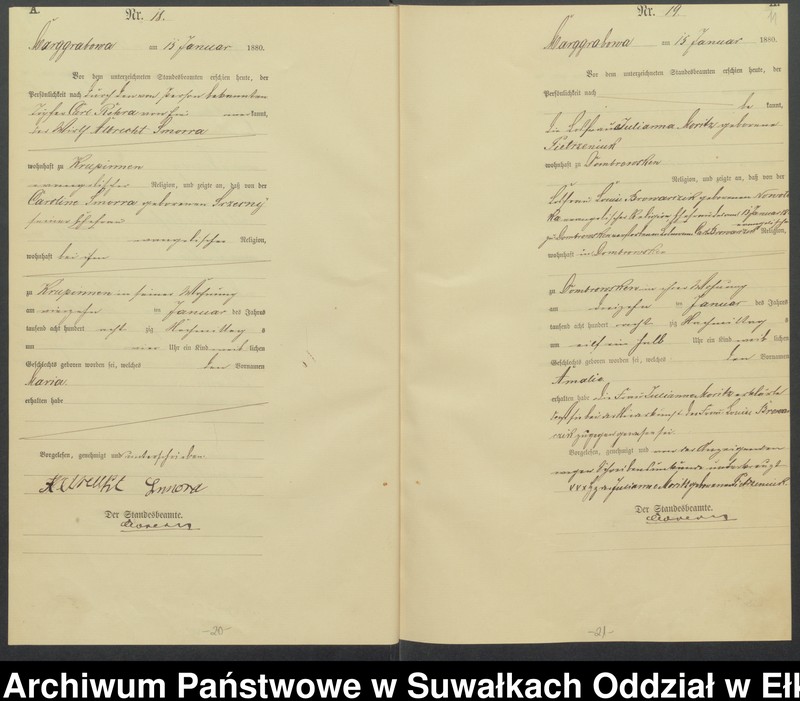 A.
Nr. 18.
Marggrabowa am 15 Januar 1880.
Vor dem unterzeichneten Standesbeamten erschien heute, der
Persönlichkeit nach durch den von Person bekannten
Carl kannt,
der Albrecht Smorra
wohnhaft zu Krupinnen
evangelischer Religion, und zeigte an, daß von der
Caroline Smorra geborenen
seiner Ehefrau
evangelischer Religion,
wohnhaft bei ihm
zu Krupinnen in seiner Wohnung
am vierzehn ten Januar des Jahres
tausend acht hundert acht zig Nachmittag s
um vier Uhr ein Kind weib lichen
Geschlechts geboren worden sei, welches den Vornamen
Maria
erhalten habe
Vorgelesen, genehmigt und unterschrieben
Albrecht Smora
Der Standesbeamte.
-20-
Nr. 19.
11
Marggrabowa am 15 Januar 1880.
Vor dem unterzeichneten Standesbeamten erschien heute, der
Persönlichkeit nach
be kannt,
die Julianna Moritz geborene
Pietrzeniuk
wohnhaft zu Dombrowsken
Religion, und zeigte an, daß von der
Louise Browarzik geborenen
evangelischer Religion Ehefrau des am Januar
zu Dombrowsken verstorbenen Carl Browarzik evangelischer Religion,
wohnhaft in Dombrowsken
zu Dombrowsken in ihrer Wohnung
am dreizehn ten Januar des Jahres
tausend acht hundert acht zig Nachmittag s
um elf ein halb Uhr ein Kind weib lichen
Geschlechts geboren worden sei, welches den Vornamen
Amalie
erhalten habe Die Frau Julianne Moritz erklärte
daß sie bei der Niederkunft der Frau Louise Browar
zik zugegen gewesen sei
Vorgelesen, genehmigt und von der Anzeigenden
wegen Schreibensunkunde unterkreuzt
xxx Julianne Moritz geborene Pietrzeniuk
Der Standesbeamte.
-21-
Archiwum Państwowe w Suwałkach Oddział w Ełk